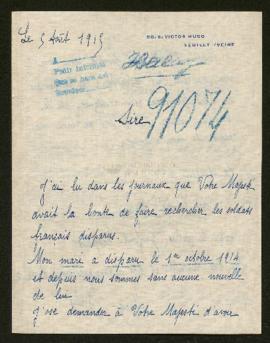 Le 5 Août 1915
BD. VICTOR HUGO
NEUILLY S/SEINE
91074
Sire
j'ai lu dans les journaux que Votre Majesté
avait la bonté de faire rechercher les soldats
français disparus.
Mon mari a disparu le 1er octobre 1914
et depuis nous sommes sans aucune nouvelle
de lui
j'ose demander à Votre Majesté d'avoir